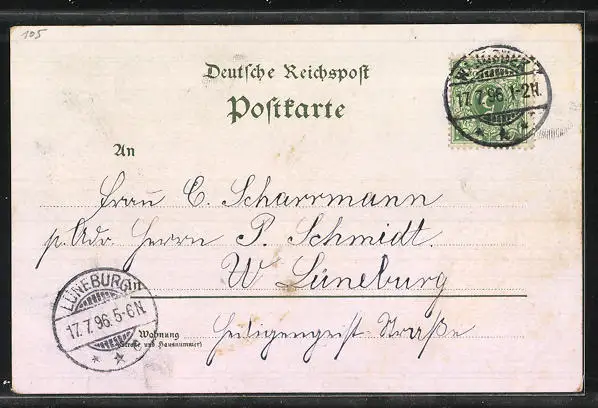 105
Deutsche Reichspost
Postkarte
17.7.96.1-2N.
An
Frau C. Scharrmann
p. Adr. Herrn P. Schmidt.
W Lüneburg
LÜNEBURG
17.7.96.5-6N.
Wohnung
(Straße und Hausnummer)
Heiligengeist-Straße